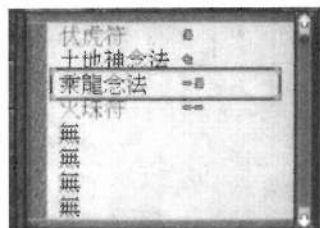 伏虎符
土地神念法
乘龍念法
火珠符
無
無
無
無